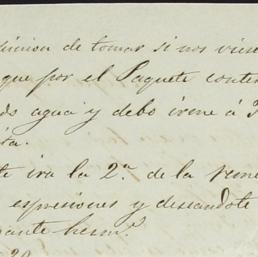 dicion de tomar si nos vien
que por el Paquete conte
ds agua y debo irme á
ita.
te ira la 2ª de la reme
espresiones y deseandote
ante herm.º